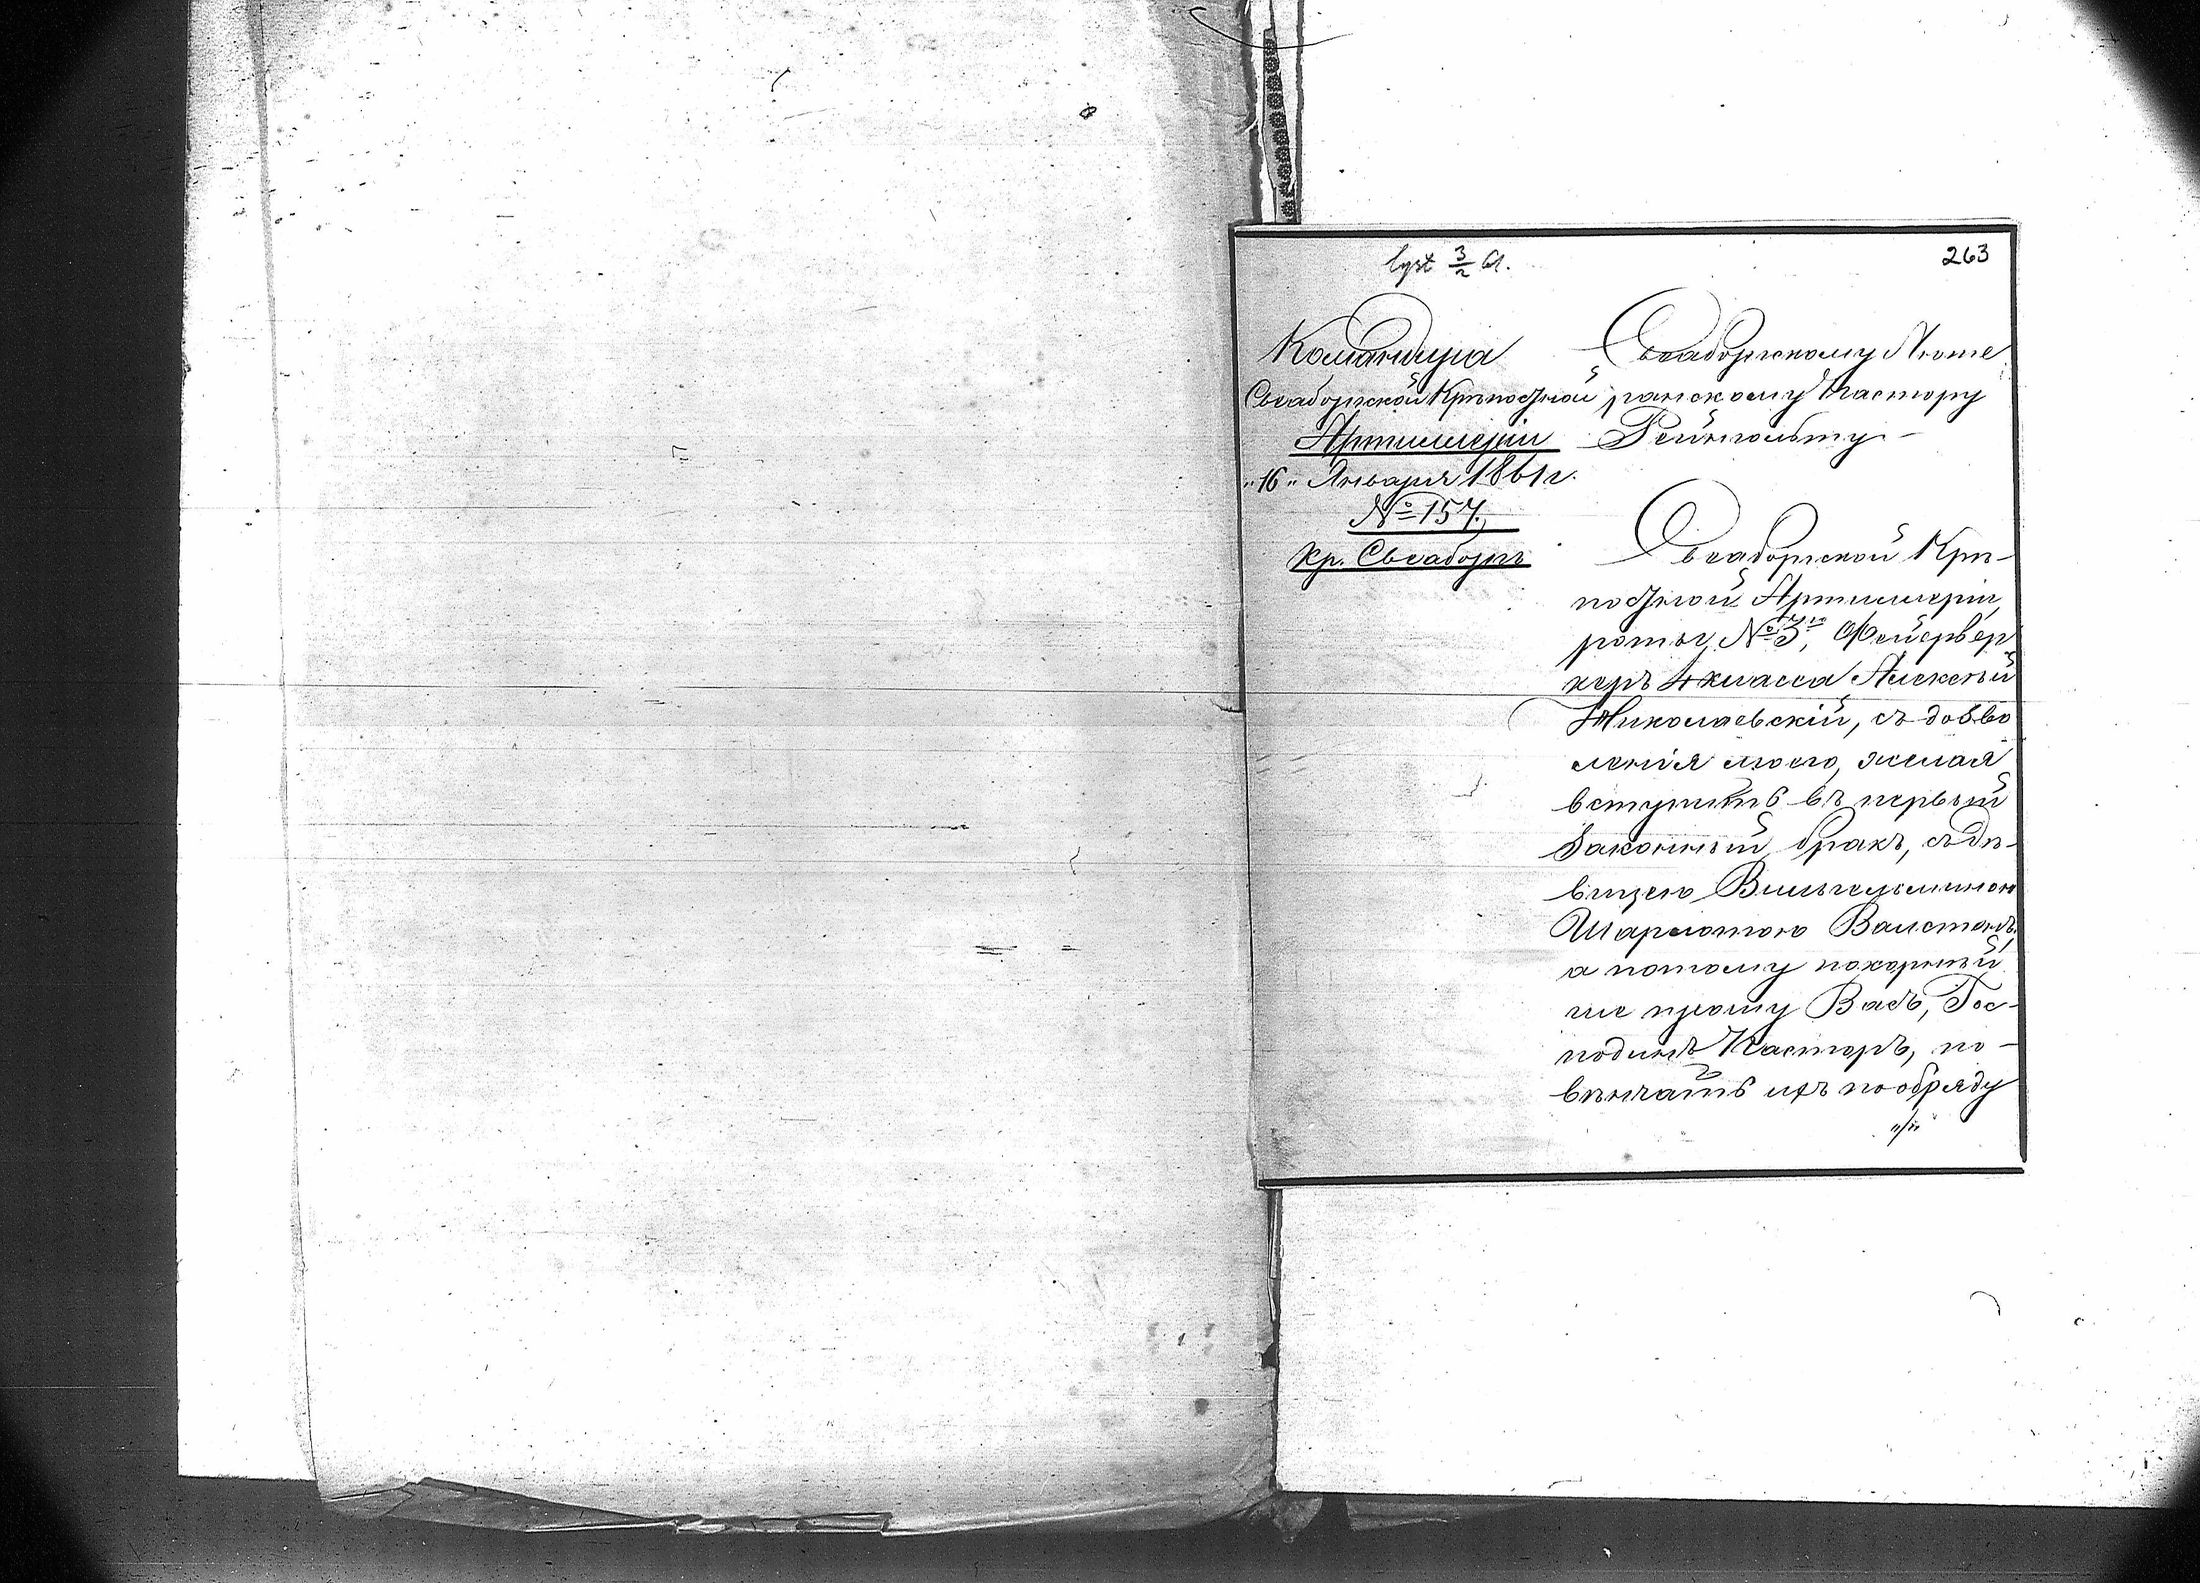 lyst 3/2 61.
263
Командира
Свеаборгской Крѣпостной
Артиллеріи
„16„ Января 1861 г.
№ 157.
Кр. Свеаборгъ
Свеаборгскому Люте
ранскому Пастору
Рейнгольту
Свеаборгской Крѣ-
постной Артиллеріи
роты № 3й, Фейервер
керъ 4 класса Алексѣй
Николаевскій, съ дозво
ленія моего, желая
вступить въ первый
законный бракъ, съ дѣ-
вицею Вильгельминою
Шарлотою Валстенъ,
а потому покорнѣй
ше прошу Васъ, Гос-
подинъ Пасторъ, по-
вѣнчать ихъ по обряду
„/„